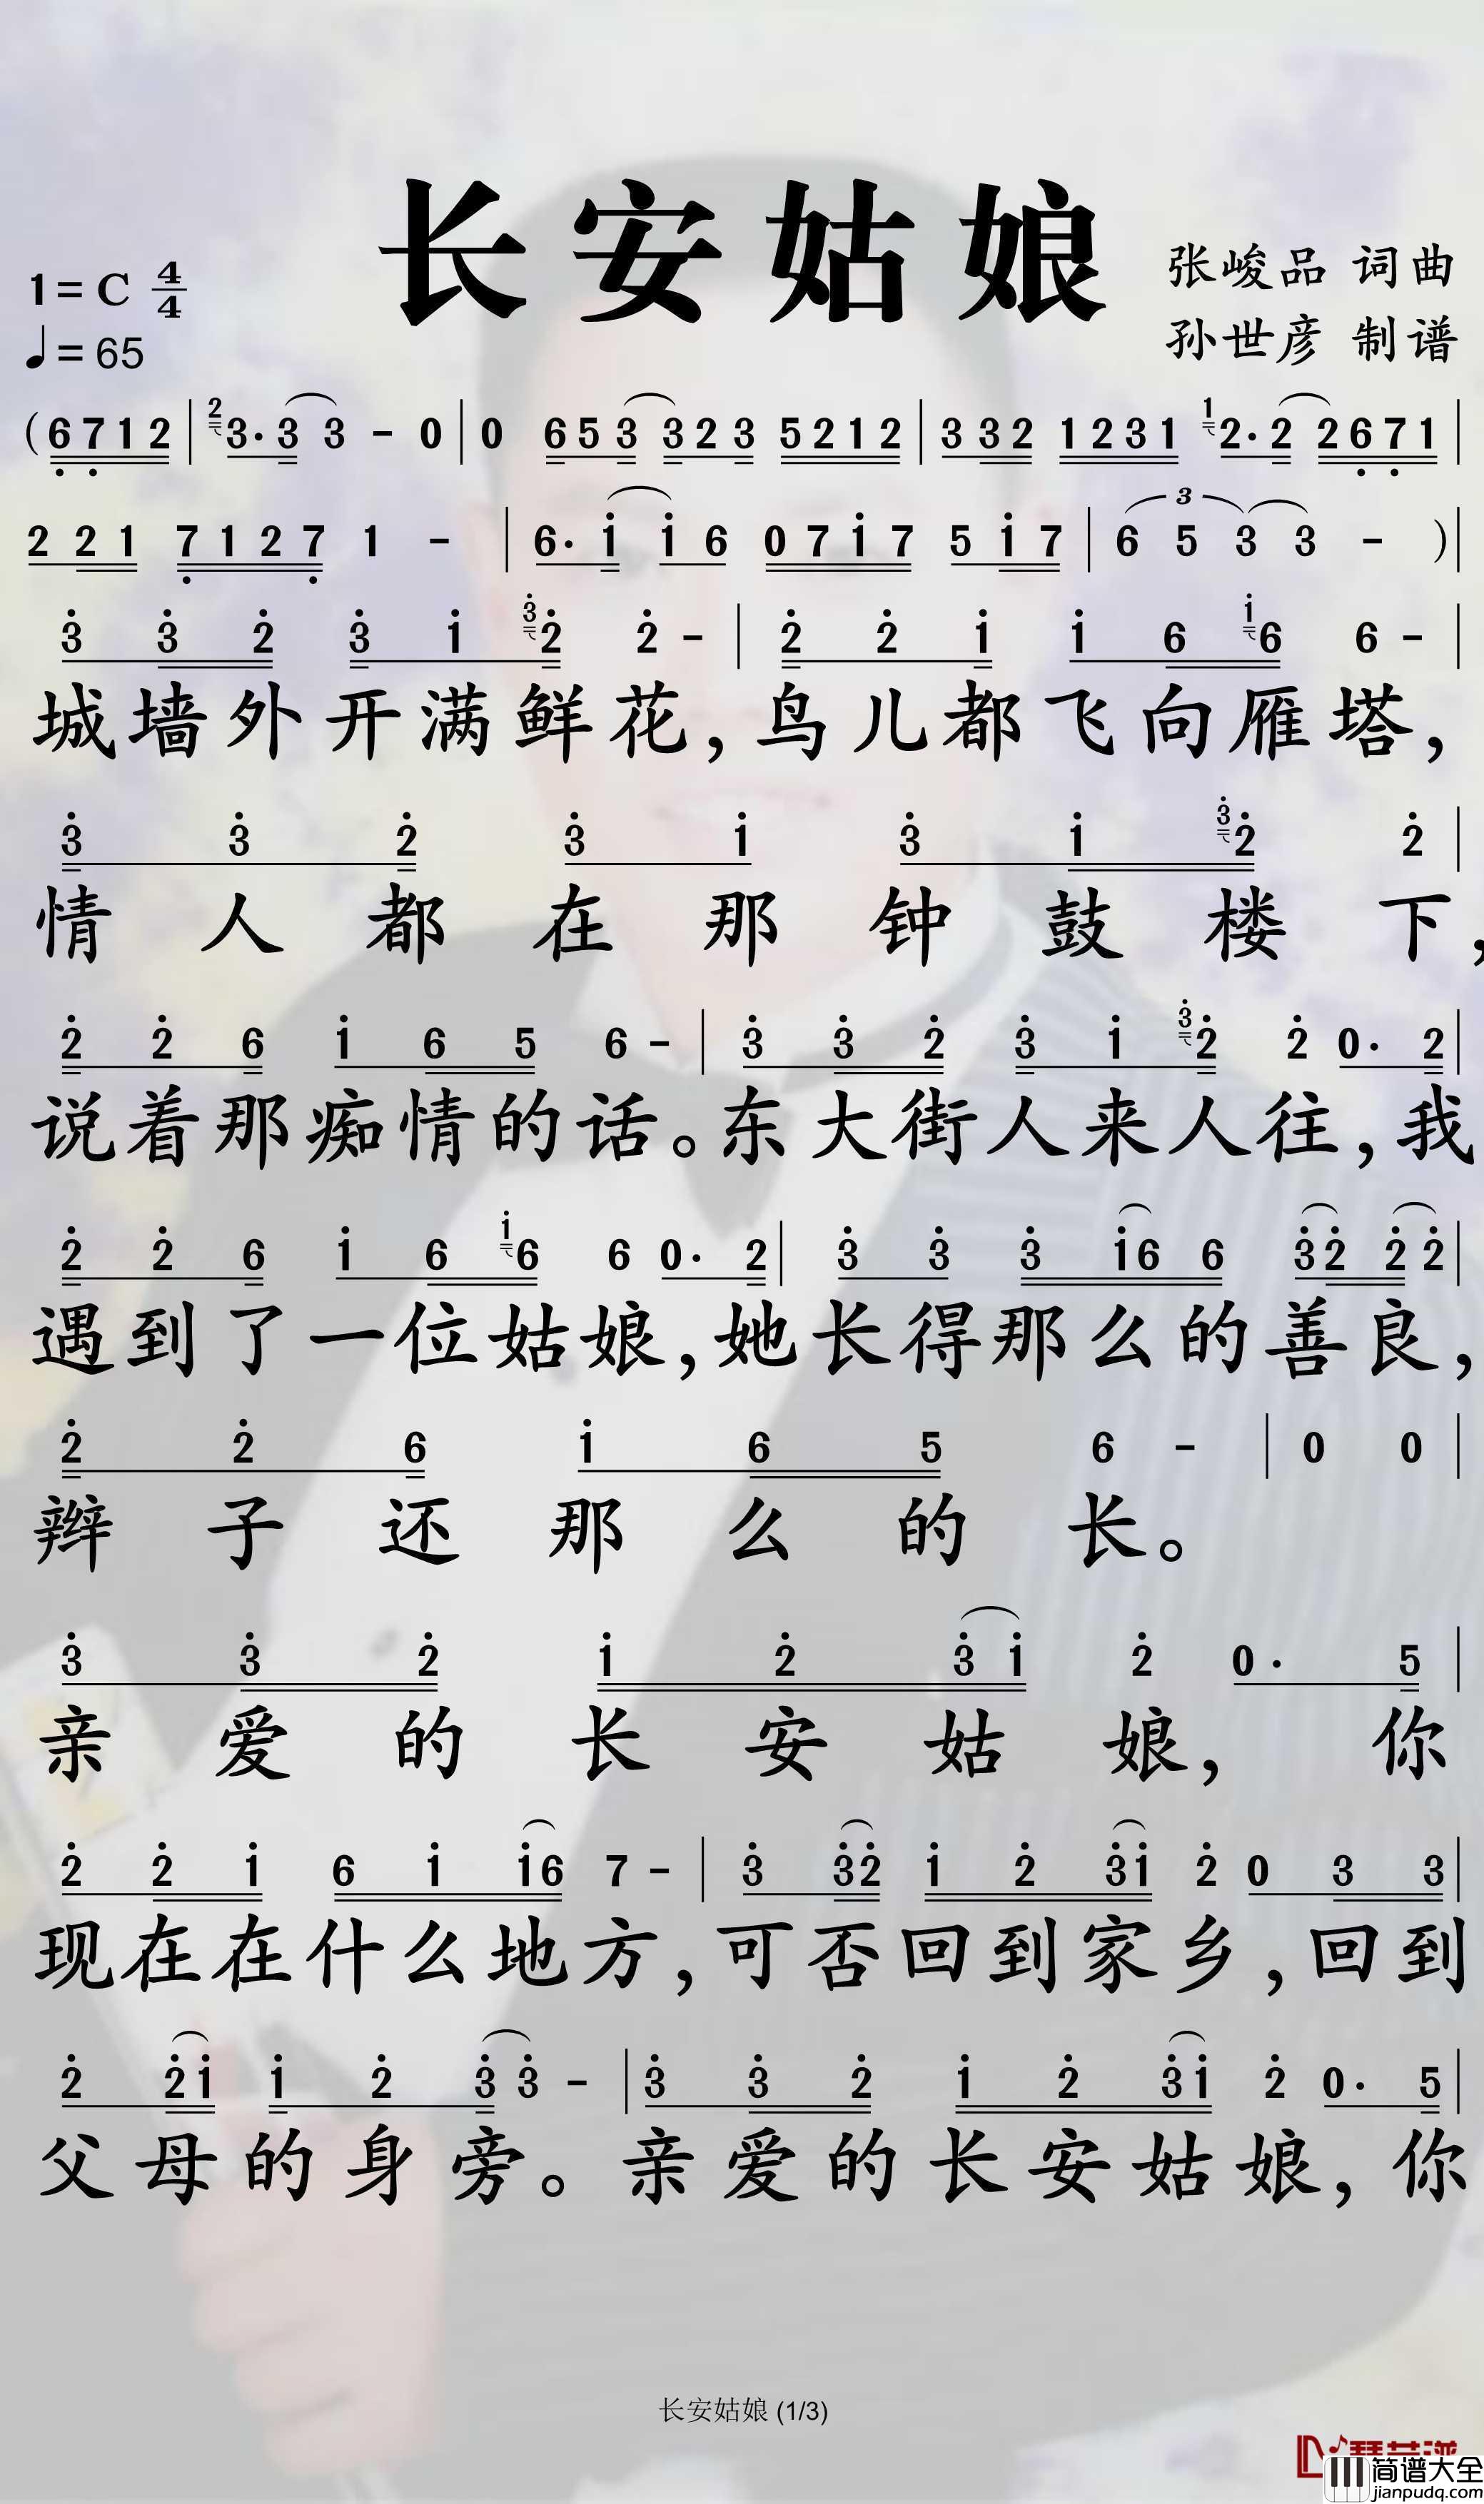 长安姑娘
1=C 4/4
♩=65
张峻品 词曲
孙世彦 制谱
(6 7 1 2 | 2 3· 3 3 - 0 | 0 6 5 3 3 2 3 5 2 1 2 | 3 3 2 1 2 3 1 1 2· 2 2 6 7 1 |
2 2 1 7 1 2 7 1 - | 6· 1 1 6 0 7 1 7 5 1 7 | 3 6 5 3 3 - ) |
3 3 2 3 1 3 2 2 - | 2 2 1 1 6 1 6 6 - |
城墙外开满鲜花,鸟儿都飞向雁塔,
3 3 2 3 1 3 1 3 2 2 |
情人都在那钟鼓楼下,
2 2 6 1 6 5 6 - | 3 3 2 3 1 3 2 2 0· 2 |
说着那痴情的话。东大街人来人往,我
2 2 6 1 6 1 6 6 0· 2 | 3 3 3 1 6 6 3 2 2 2 |
遇到了一位姑娘,她长得那么的善良,
2 2 6 1 6 5 6 - | 0 0 |
辫子还那么的长。
3 3 2 1 2 3 1 2 0· 5 |
亲爱的长安姑娘,你
2 2 1 6 1 1 6 7 - | 3 3 2 1 2 3 1 2 0 3 3 |
现在在什么地方,可否回到家乡,回到
2 2 1 1 2 3 3 - | 3 3 2 1 2 3 1 2 0· 5 |
父母的身旁。亲爱的长安姑娘,你
长安姑娘 (1/3)
简谱大全
jianpudq.com